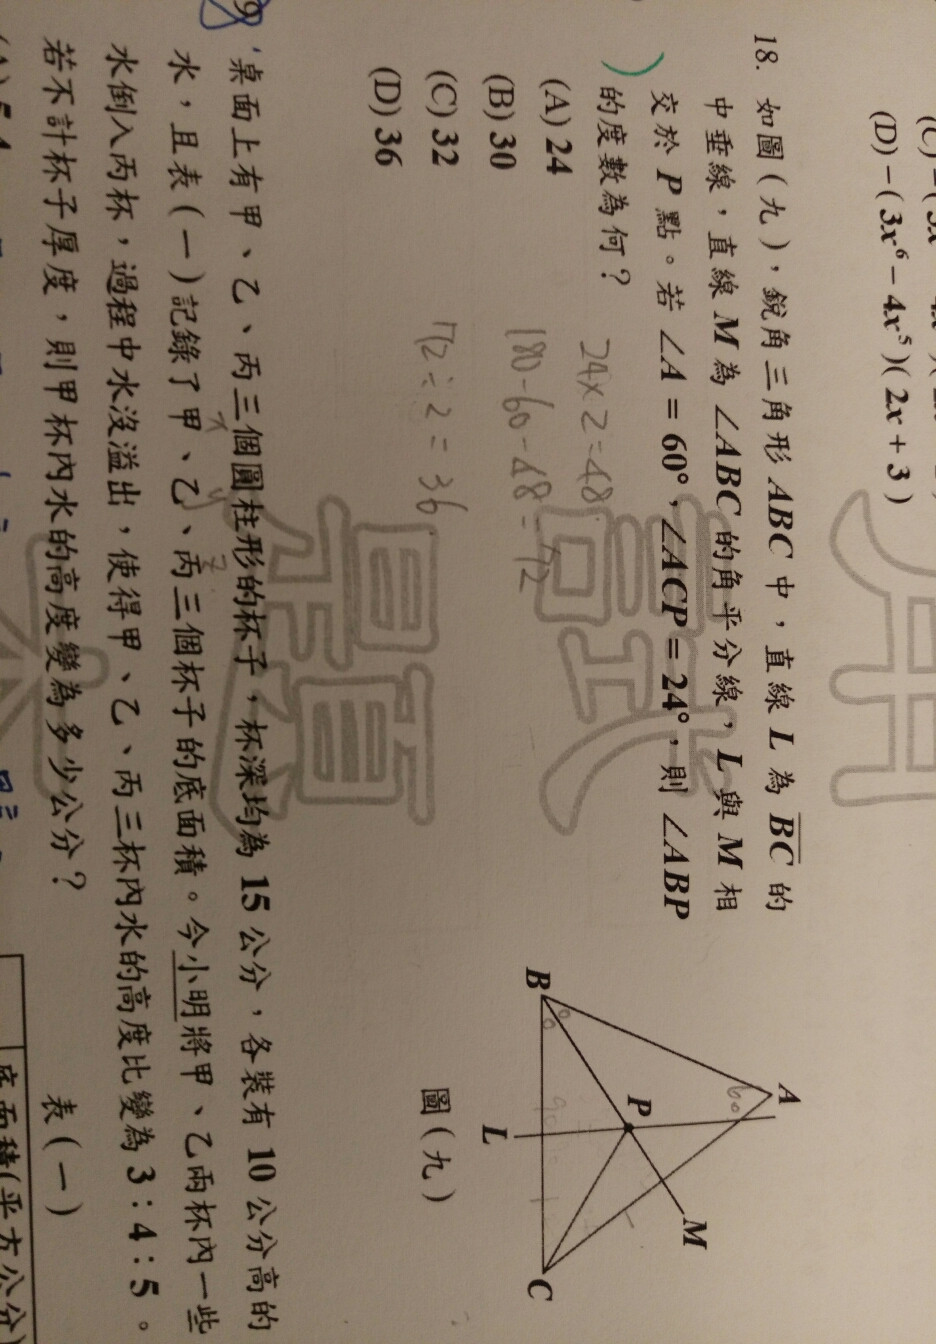 (D) −( 3x⁶ − 4x⁵ )( 2x + 3 )
18. 如圖(九)，銳角三角形 ABC 中，直線 L 為 BC 的
中垂線，直線 M 為 ∠ABC 的角平分線，L 與 M 相
交於 P 點。若 ∠A = 60°，∠ACP = 24°，則 ∠ABP
的度數為何？
(A) 24
(B) 30
(C) 32
(D) 36
24×2=48
180-60-48=72
72÷2=36
A
60
P
M
B
C
L
圖(九)
19 桌面上有甲、乙、丙三個圓柱形的杯子，杯深均為 15 公分，各裝有 10 公分高的
水，且表(一)記錄了甲、乙、丙三個杯子的底面積。今小明將甲、乙兩杯內一些
水倒入丙杯，過程中水沒溢出，使得甲、乙、丙三杯內水的高度比變為 3：4：5。
若不計杯子厚度，則甲杯內水的高度變為多少公分？
表(一)
底面積(平方公分)
(A) 5.4